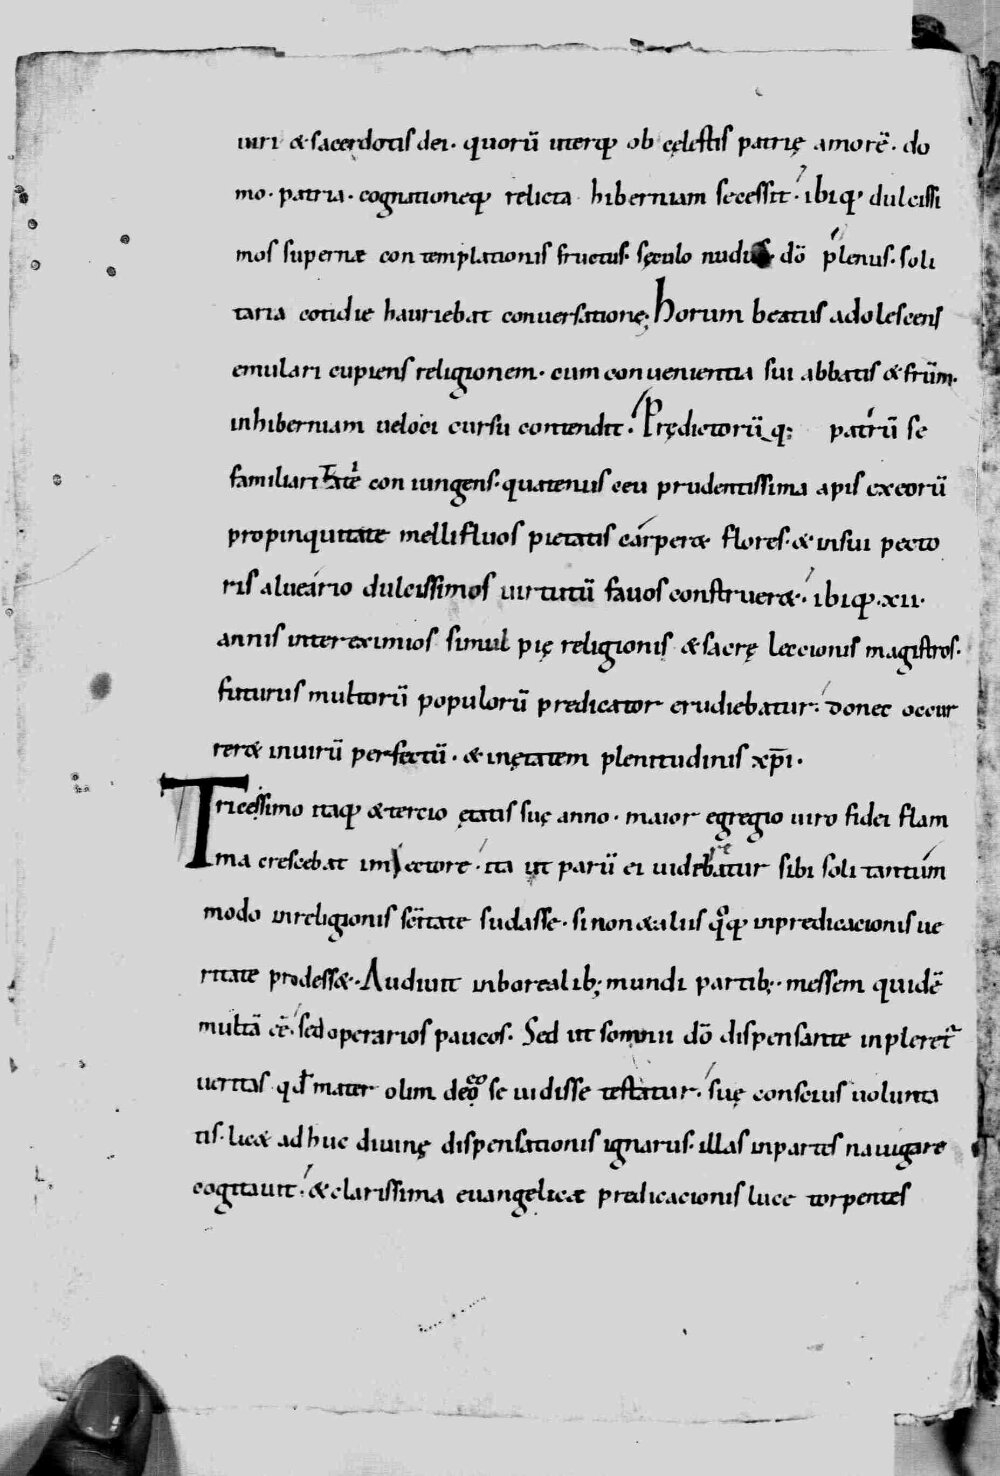 uiri & sacerdotis dei. quorū uterq; ob cęlestis patrię amorē. do
mo. patria. cognationeq; relicta hiberniam secessit. ibiq; dulcissi
mos supernæ contemplationis fructus. sęculo nudus. dō plenus. soli
taria cotidie hauriebat conuersationę; Horum beatus adolescens
emulari cupiens religionem. cum conuenientia sui abbatis & frūm.
in hiberniam ueloci cursu contendit. Prędictorū q; patrū se
familiaritate coniungens. quatenus ceu prudentissima apis ex eorū
propinquitate mellifluos pietatis carperæ flores. & in sui pecto
ris alueário dulcissimos uirtutū fauos construeræ. ibiq;.xii.
annis inter eximios simul pię religionis & sacrę leccionis magistros.
futurus multorū populorū predicator erudiebatur. donec occur
rer& in uirū perfectū. & in ętatem plenitudinis xp̄i.
Tricessimo itaq; & tercio ętatis suę anno. maior egregio uiro fidei flam
ma crescebat in pectore. ita ut parū ei uideretur sibi soli tantúm
modo in religionis sc̄itate sudasse. si non & aliis qq; in predicacionis ue
ritate prodess&. Audiuit in borealib; mundi partib;. messem quidē
multā eē. sed operarios paucos. Sed ut somnii dō dispensante inpleret᷑
ueritas qđ mater olim de eo se uidisse testatur. suę conscius uolunta
tis. lic& adhuc diuinę dispensationis ignarus. illas in partes nauigare
cogitauit. & clarissima euangelicæ predicacionis luce torpentes